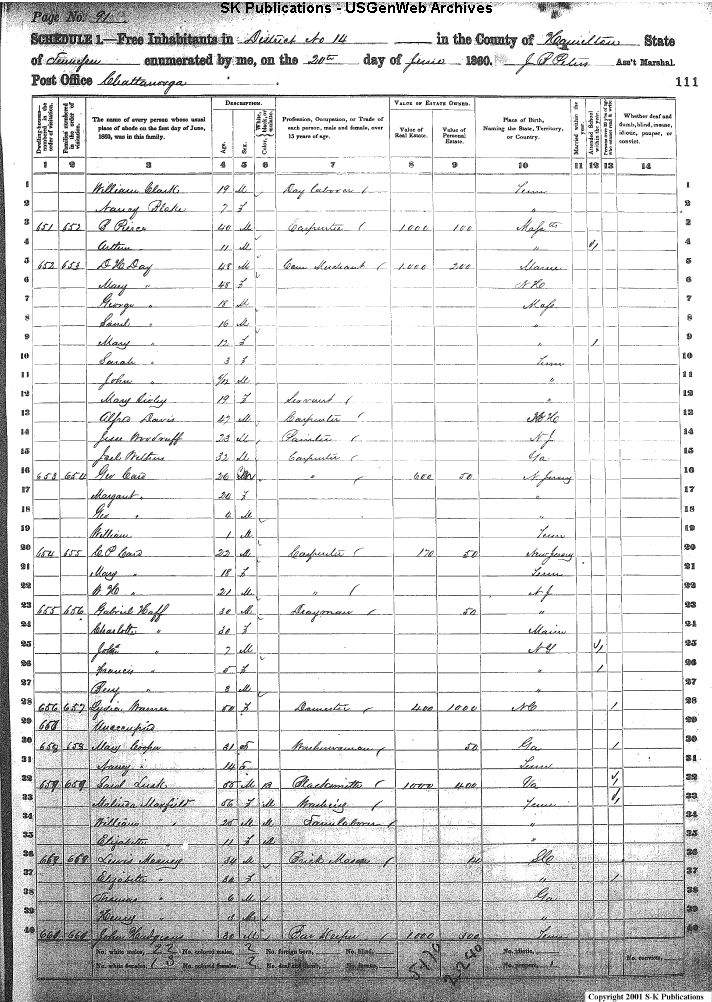 SK Publications - USGenWeb Archives
Page No. 91
SCHEDULE 1.—Free Inhabitants in District No 14 in the County of Hamilton State
of enumerated by me, on the 20th day of June 1860. Ass't Marshal.
Post Office Chattanooga
111
Dwelling-houses—numbered in the order of visitation.
Families numbered in the order of visitation.
The name of every person whose usual place of abode on the first day of June, 1860, was in this family.
DESCRIPTION.
Age.
Sex.
Color, White, black, or mulatto.
Profession, Occupation, or Trade of each person, male and female, over 15 years of age.
VALUE OF ESTATE OWNED.
Value of Real Estate.
Value of Personal Estate.
Place of Birth, Naming the State, Territory, or Country.
Married within the year.
Attended School within the year.
Whether deaf and dumb, blind, insane, idiotic, pauper, or convict.
1 2 3 4 5 6 7 8 9 10 11 12 13 14
1 William Clark 19 M Day laborer Tenn 1
2 Nancy Blake 7 F " 2
3 651 652 B Pierce 40 M Carpenter 1000 100 Mass 3
4 " 11 M " 1 4
5 652 653 D H Day 48 M Merchant 1.000 200 Maine 5
6 Mary " 48 F 6
7 George " 18 M Mass 7
8 Saml " 16 M " 8
9 Mary " 12 F " 1 9
10 Sarah " 3 F Tenn 10
11 John " M " 11
12 Mary 19 F Servant " 12
13 Alfred Davis 47 M Carpenter 13
14 Jesse Woodruff 23 M Painter N J 14
15 32 M Carpenter Ga 15
16 653 654 Geo Card 26 M " 600 50 N Jersey 16
17 Margaret " 24 F " 17
18 Geo " 4 M " 18
19 William 1 M Tenn 19
20 654 655 C P Card 22 M Carpenter 170 50 New Jersey 20
21 Mary " 18 F Tenn 21
22 W H " 21 M " N J 22
23 655 656 Gabriel Haff 30 M Drayman 50 " 23
24 Charlotte " 30 F Maine 24
25 John " 7 M 1 25
26 Francis " 5 F " 1 26
27 " 3 M " 27
28 656 657 Lydia Warner 50 F Domestic 400 1000 NC 1 28
29 Unoccupied 29
30 658 658 Mary Cooper 31 F Washerwoman 50 Ga 1 30
31 Nancy " 14 F Tenn 31
32 659 659 Luck 55 M B Blacksmith 1000 400 Va 1 32
33 Malinda Maxfield 56 F M Washing Tenn 1 33
34 William " 25 M M Farm laborer " 34
35 Elizabeth " 11 F M " 35
36 Lewis 34 M Brick Mason 36
37 Elizabeth " F " 1 37
38 Thomas " 6 M Ga 38
39 Henry " 3 M " 39
40 660 660 John 30 M Bar Keeper 1.000 300 Tenn 40
No. white males, 22 No. colored males, 2 No. foreign born, No. blind, No. idiotic, No. convicts,
No. white females, 13 No. colored females, 2 No. deaf and dumb, No. insane, No. paupers,
5170
2240
Copyright 2001 S-K Publications